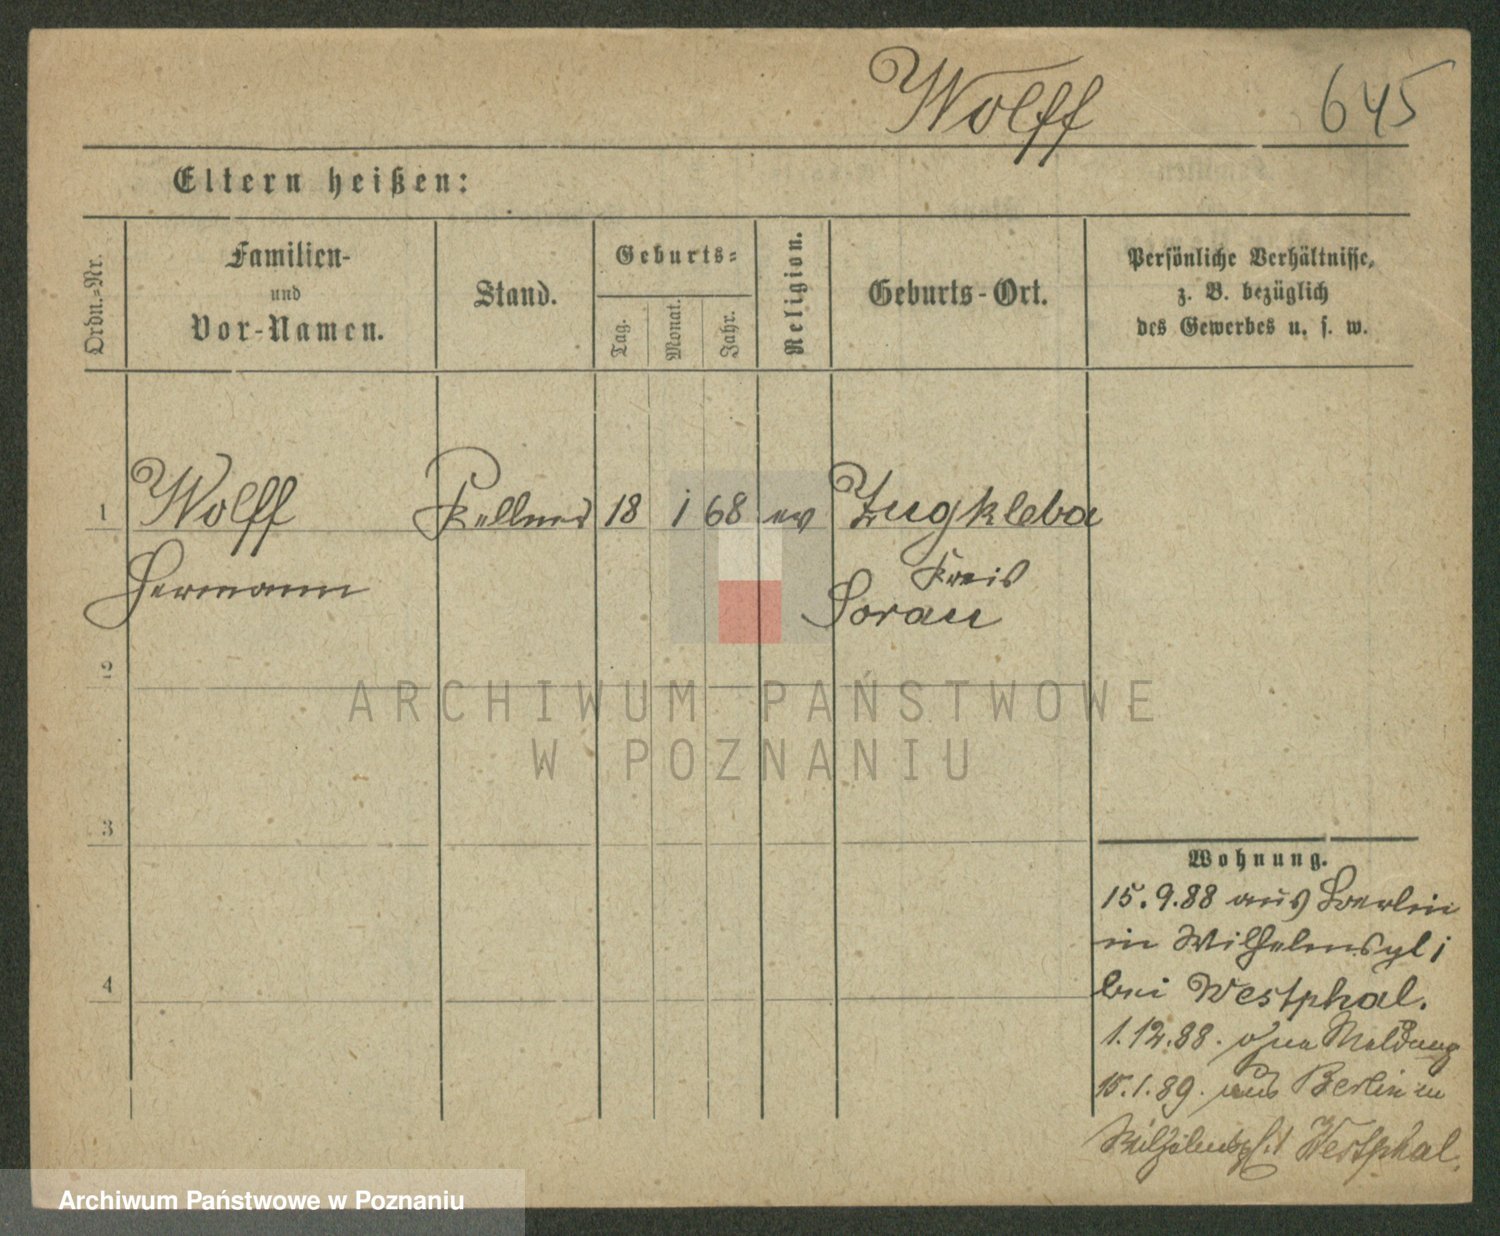 Wolff 645
Eltern heißen:
Ordn.-Nr.
Familien-
und
Vor-Namen.
Stand.
Geburts-
Tag.
Monat.
Jahr.
Religion.
Geburts-Ort.
Persönliche Verhältnisse,
z. B. bezüglich
des Gewerbes u. s. w.
1 Wolff Kellner 18 1 68 ev Zugkleba
Hermann
Kreis
Sorau
2
3
4
Wohnung.
15.9.88 aus Berlin
in Wilhelmspl 1
bei Westphal.
1.12.88. ohne Meldung
15.1.89. aus Berlin in
Wilhelmspl. 1 Westphal.
ARCHIWUM PAŃSTWOWE
W POZNANIU
Archiwum Państwowe w Poznaniu